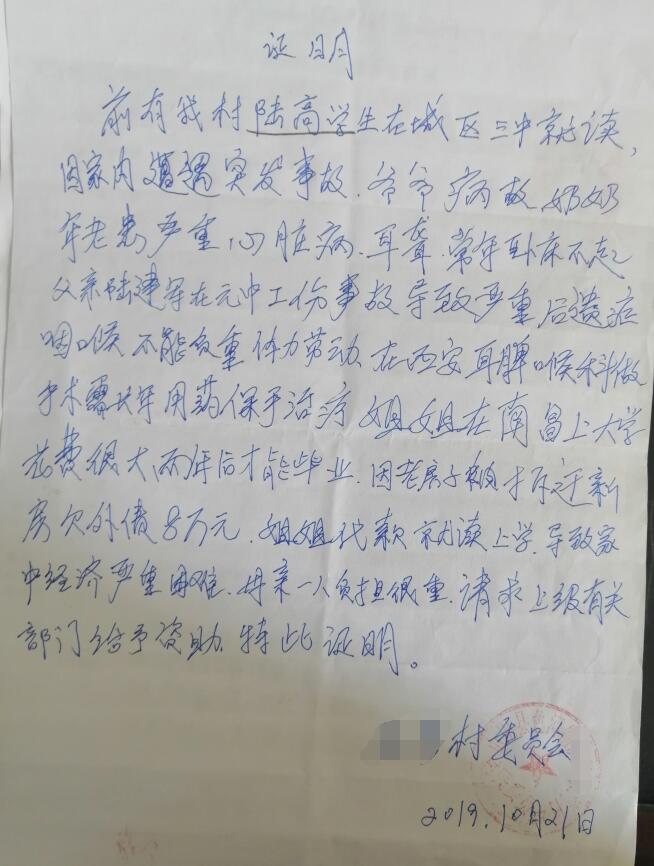 证明
前有我村陆高学生在城区三中就读,
因家内遭遇突发事故、爷爷病故、奶奶
年老患严重心脏病、耳聋、常年卧床不起
父亲陆建军在元中工伤事故导致严重后遗症
咽喉不能负重体力劳动、在西安耳脾喉科做
手术需长年用药保守治疗 姐姐在南昌上大学
花费很大、两年后才能毕业、因老房子被拆迁新
房欠外债8万元、姐姐代款就读上学、导致家
中经济严重困难、母亲一人负担很重、请求上级有关
部门给予资助、特此证明。
村委员会
2019.10月21日